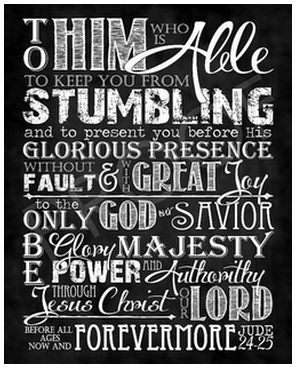 TO HIM WHO IS Able
TO KEEP YOU FROM
STUMBLING
and to present you before His
GLORIOUS PRESENCE
WITHOUT FAULT & WITH GREAT Joy
to the ONLY GOD our SAVIOR
BE Glory MAJESTY
POWER AND Authorithy
THROUGH Jesus Christ OUR LORD
BEFORE ALL AGES NOW AND FOREVERMORE JUDE 24-25